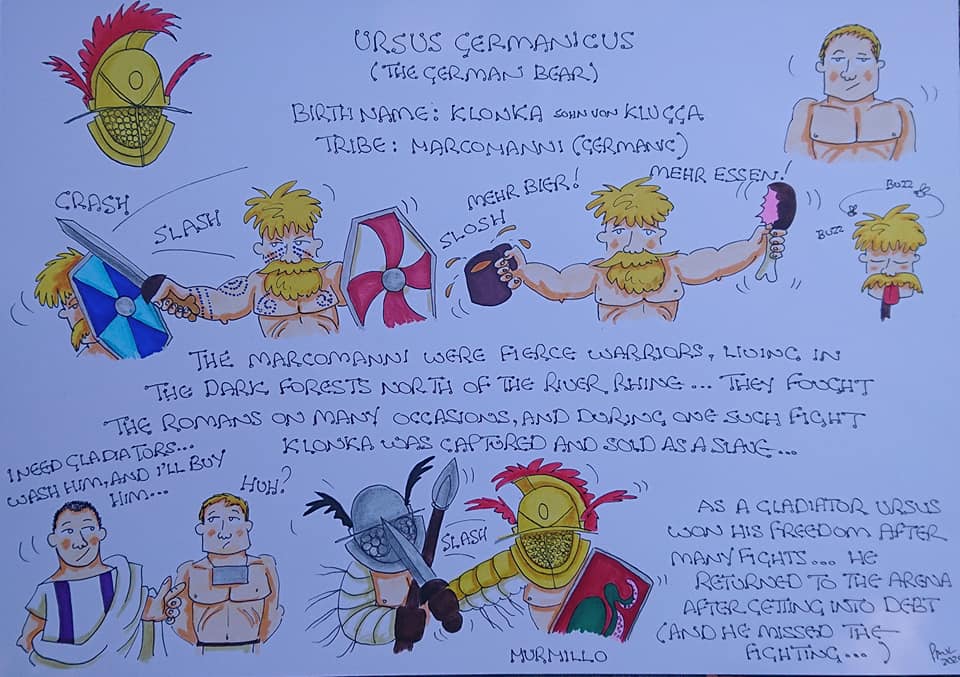 URSUS GERMANICUS
(THE GERMAN BEAR)
BIRTH NAME: KLONKA SOHN VON KLUGGA
TRIBE: MARCOMANNI (GERMANIC)
CRASH
SLASH
MEHR BIER!
SLOSH
MEHR ESSEN!
BUZZ
BUZZ
THE MARCOMANNI WERE FIERCE WARRIORS, LIVING IN
THE DARK FORESTS NORTH OF THE RIVER RHINE... THEY FOUGHT
THE ROMANS ON MANY OCCASIONS, AND DURING ONE SUCH FIGHT
KLONKA WAS CAPTURED AND SOLD AS A SLAVE...
I NEED GLADIATORS...
WASH HIM, AND I'LL BUY
HIM...
HUH?
SLASH
MURMILLO
AS A GLADIATOR URSUS
WON HIS FREEDOM AFTER
MANY FIGHTS.... HE
RETURNED TO THE ARENA
AFTER GETTING INTO DEBT
(AND HE MISSED THE
FIGHTING...)